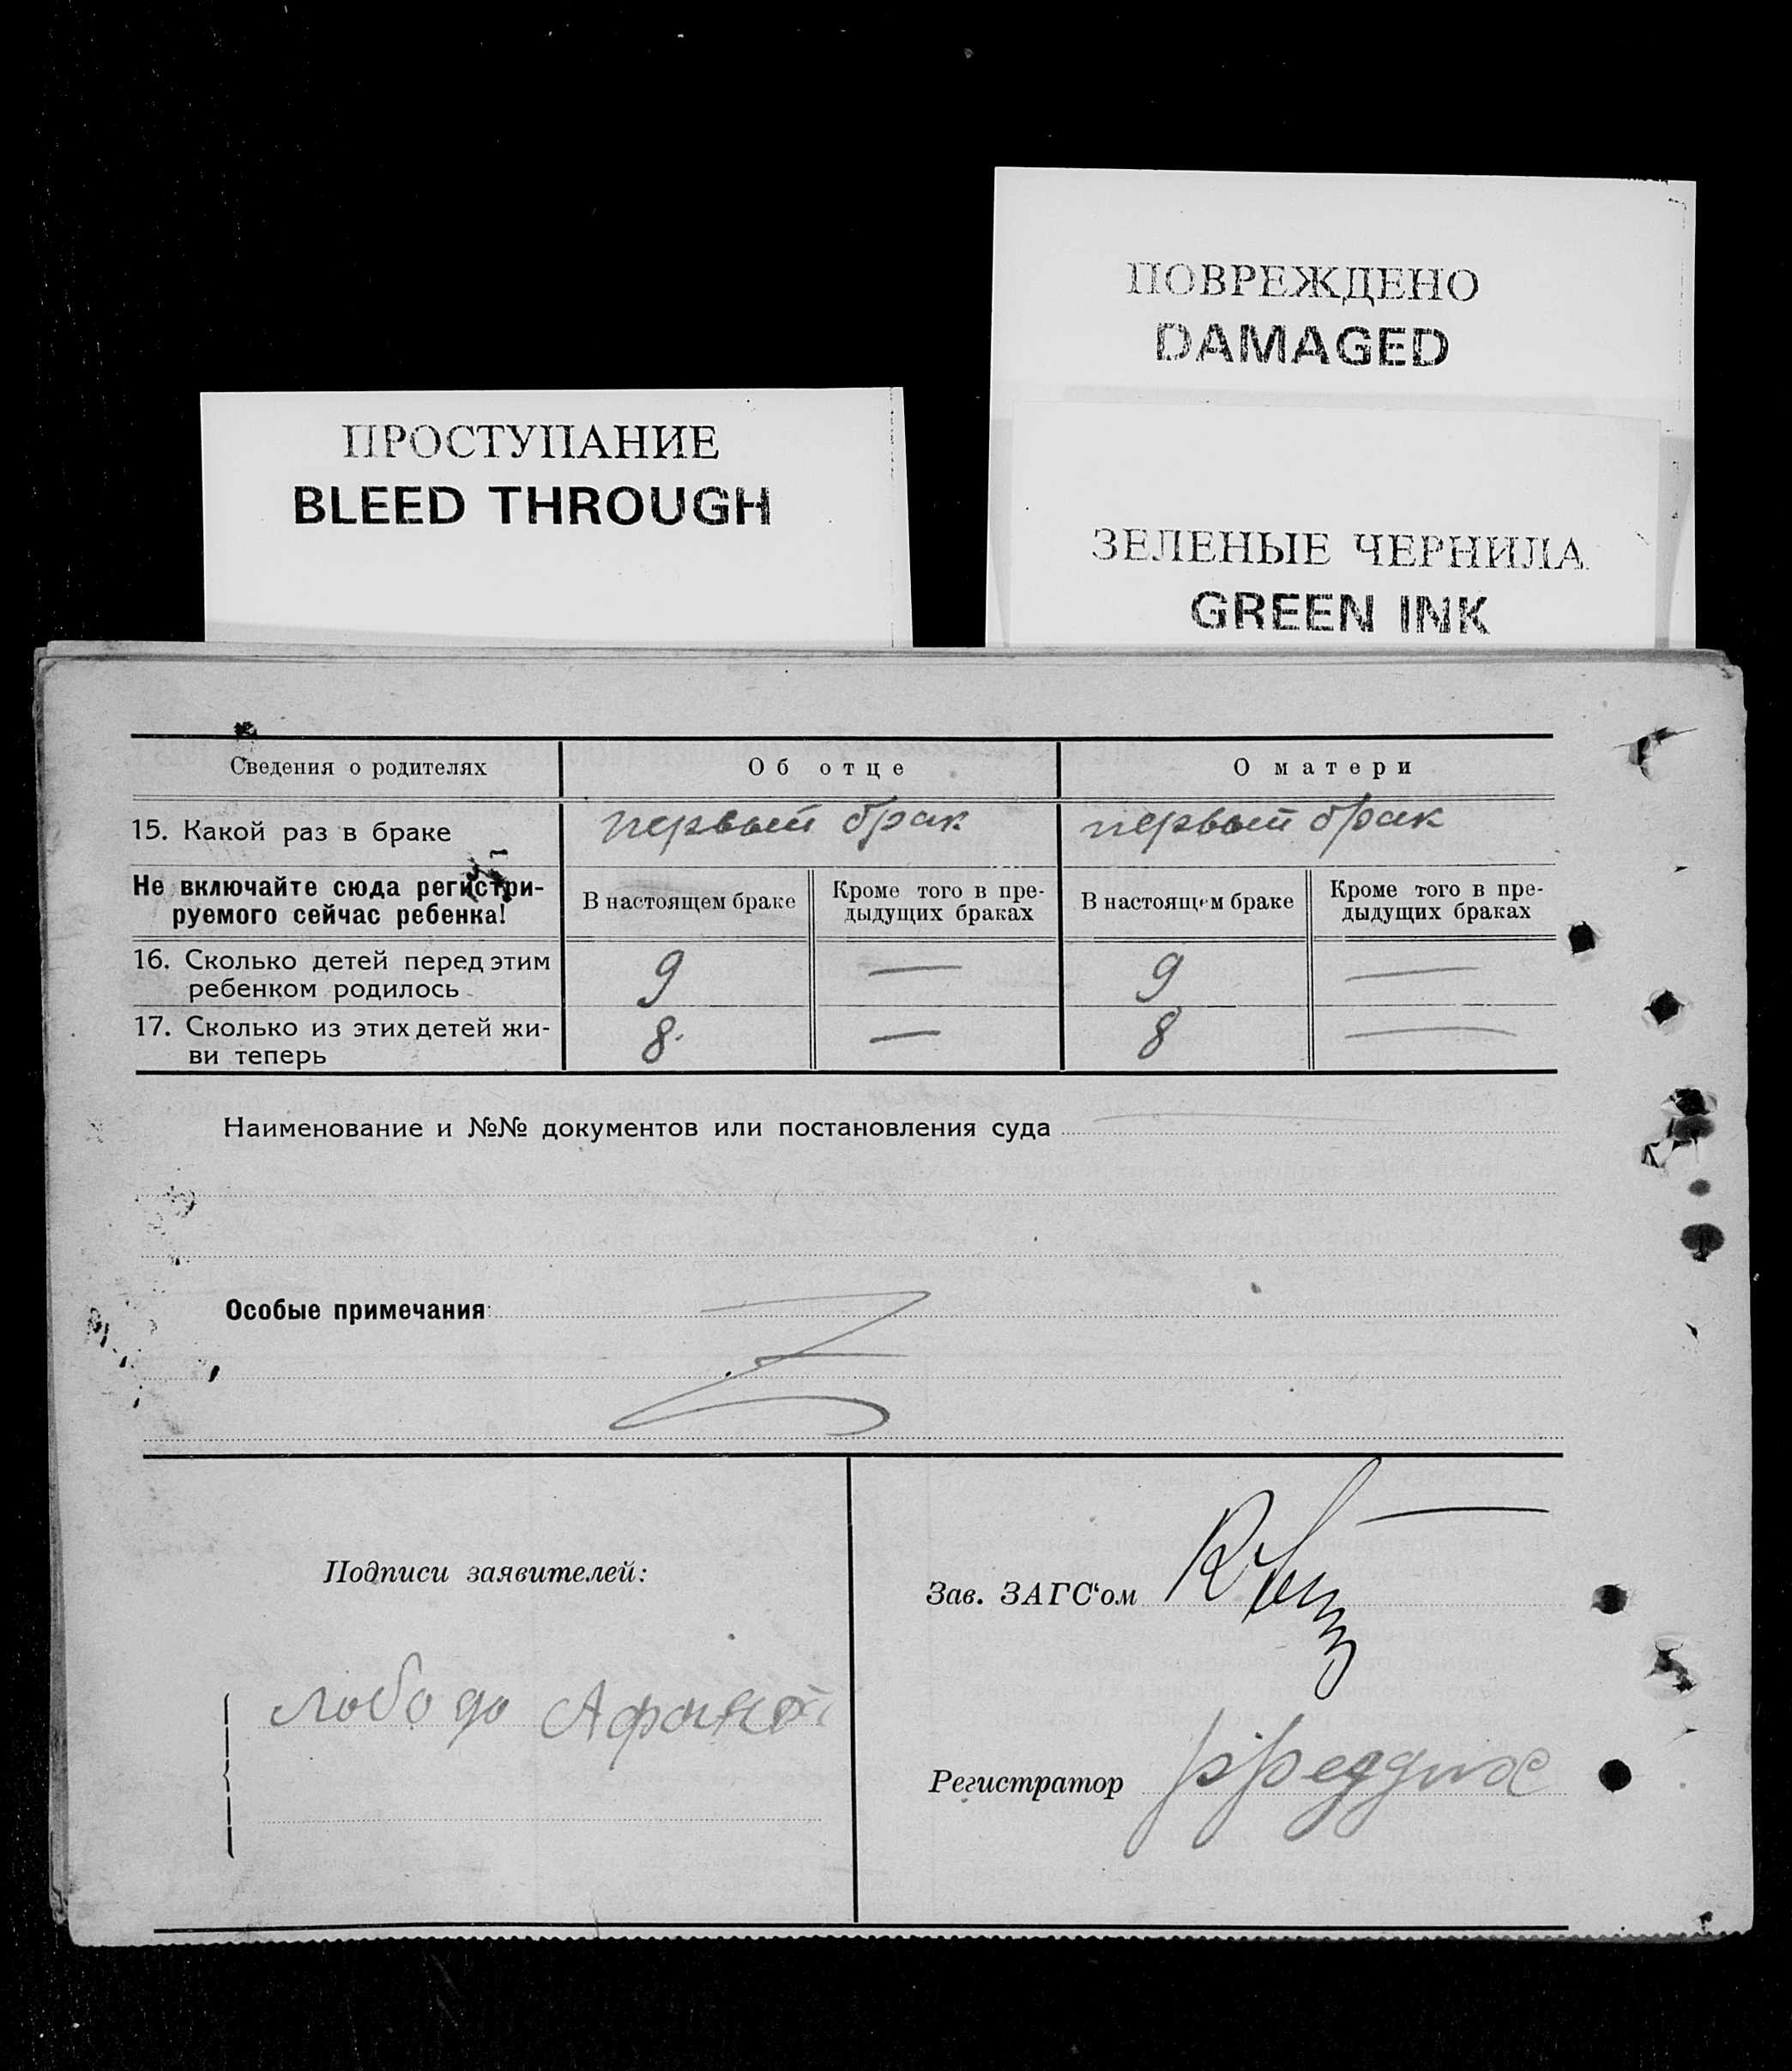 ПОВРЕЖДЕНО
DAMAGED
ПРОСТУПАНИЕ
BLEED THROUGH
ЗЕЛЕНЫЕ ЧЕРНИЛА
GREEN INK
Сведения о родителях Об отце О матери
15. Какой раз в браке первый брак первый брак
Не включайте сюда регистри-
руемого сейчас ребенка!
В настоящем браке
Кроме того в пре-
дыдущих браках
В настоящем браке
Кроме того в пре-
дыдущих браках
16. Сколько детей перед этим
ребенком родилось 9 — 9 —
17. Сколько из этих детей жи-
ви теперь 8 — 8 —
Наименование и №№ документов или постановления суда
Особые примечания:
Подписи заявителей:
Зав. ЗАГС'ом
лободо
Регистратор